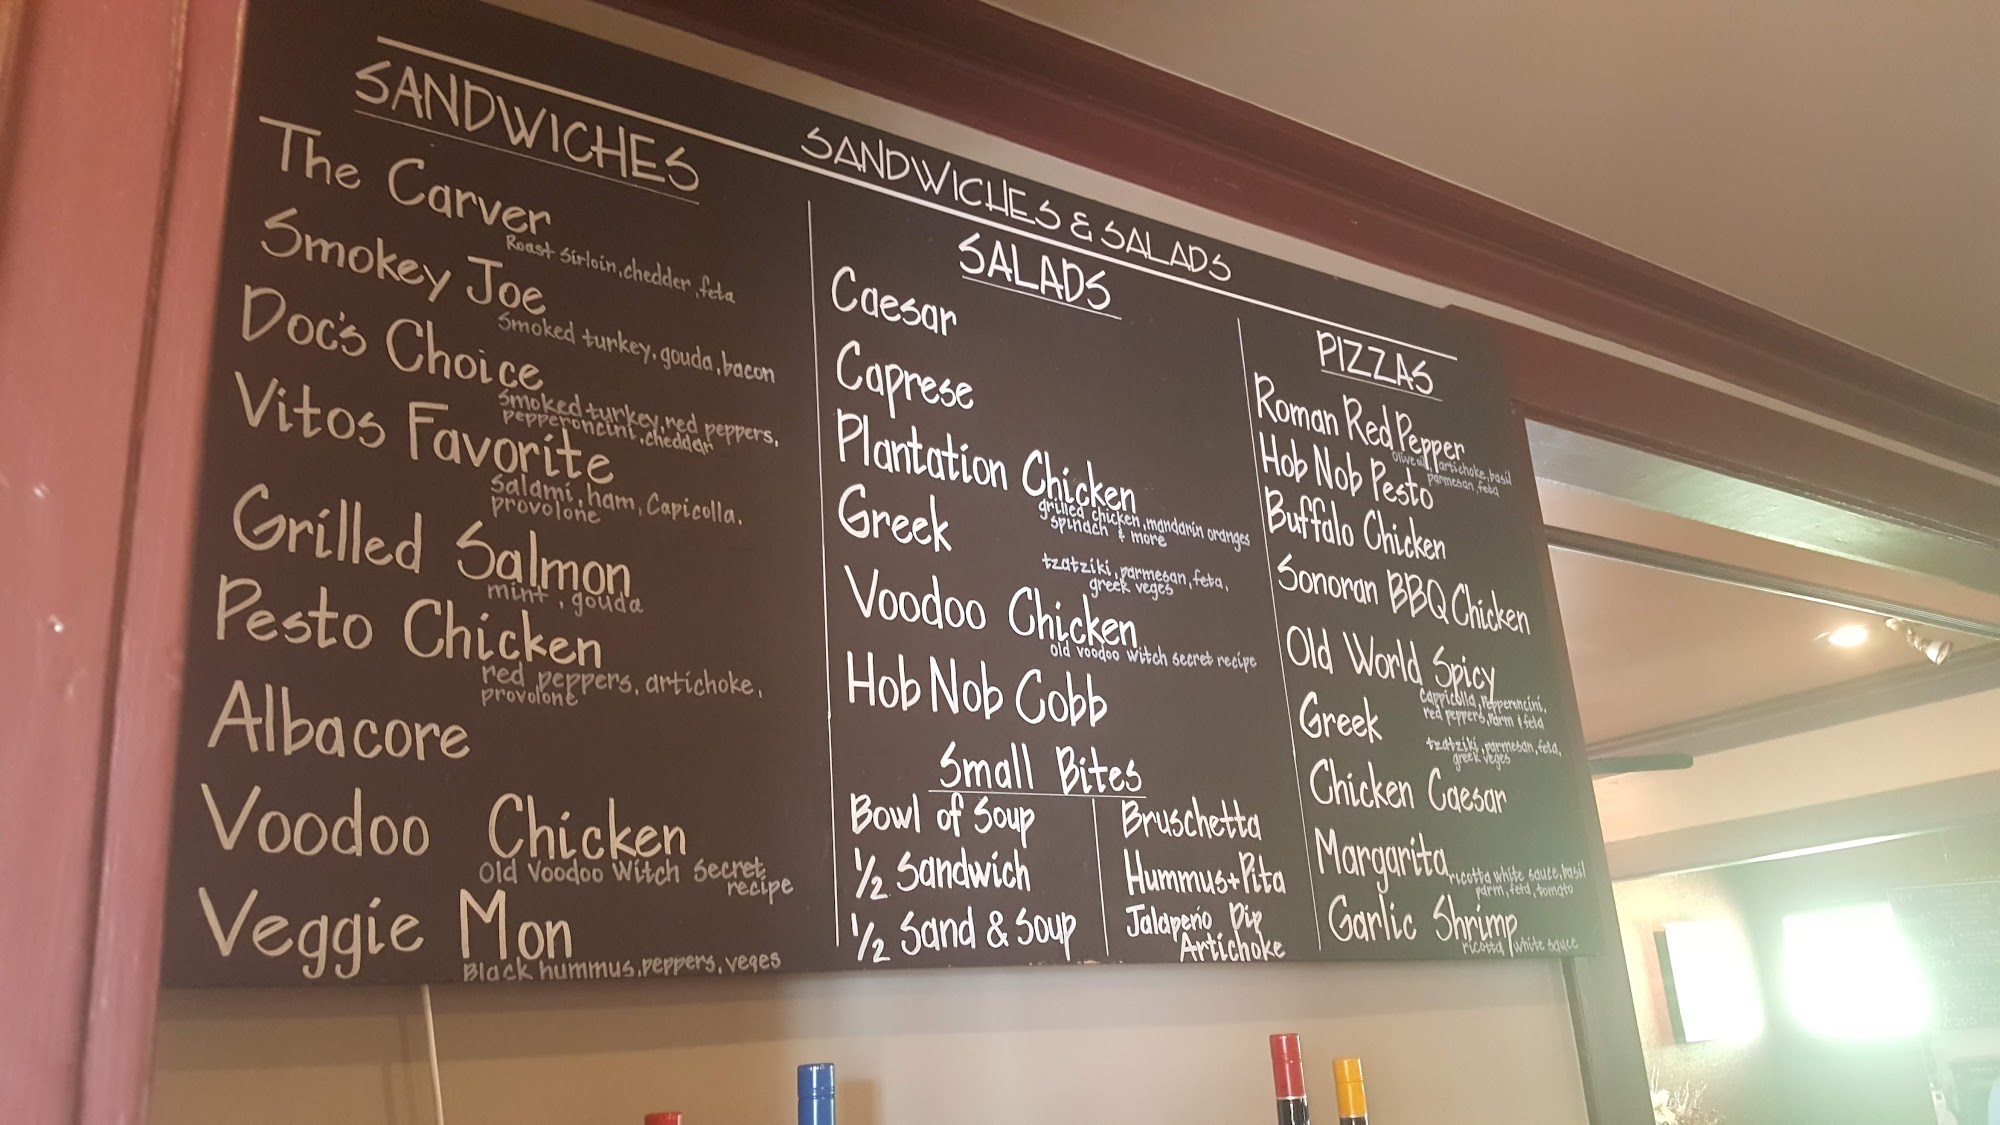 SANDWICHES & SALADS
SANDWICHES
The Carver
Roast Sirloin, chedder, feta
Smokey Joe
Smoked turkey, gouda, bacon
Doc's Choice
Smoked turkey, red peppers,
pepperoncini, cheddar
Vitos Favorite
Salami, ham, Capicolla,
provolone
Grilled Salmon
mint, gouda
Pesto Chicken
red peppers, artichoke,
provolone
Albacore
Voodoo Chicken
Old Voodoo Witch Secret
recipe
Veggie Mon
Black hummus, peppers, veges
SALADS
Caesar
Caprese
Plantation Chicken
grilled chicken, mandarin oranges
spinach & more
Greek
tzatziki, parmesan, feta,
greek veges
Voodoo Chicken
old voodoo witch secret recipe
Hob Nob Cobb
Small Bites
Bowl of Soup
1/2 Sandwich
1/2 Sand & Soup
Bruschetta
Hummus + Pita
Jalapeño Dip
Artichoke
PIZZAS
Roman Red Pepper
Olive oil, artichoke, basil
parmesan, feta
Hob Nob Pesto
Buffalo Chicken
Sonoran BBQ Chicken
Old World Spicy
Cappicolla, Pepperoncini,
red peppers, parm & feta
Greek
tzatziki, parmesan, feta,
greek veges
Chicken Caesar
Margarita
ricotta white sauce, basil
parm, feta, tomato
Garlic Shrimp
ricotta white sauce